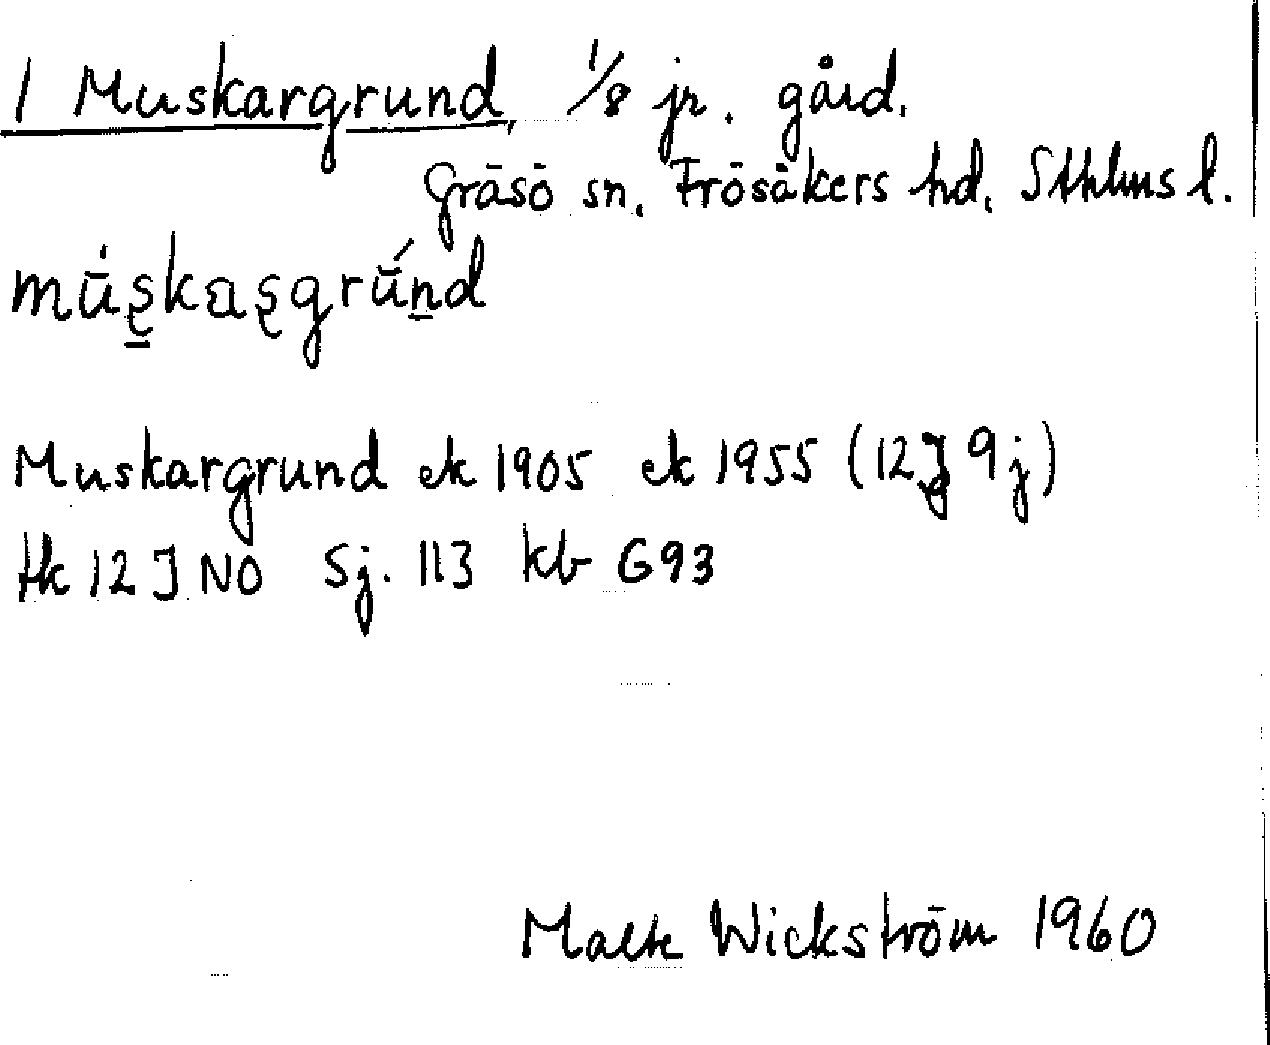 1 Muskargrund, 1/8 jr. gård.
Gräsö sn. Frösåkers hd. Sthlms l.
Muskargrund ek 1905 ek 1955 (12J 9j)
tk 12 J NO Sj. 113 kb G93
Malte Wickström 1960